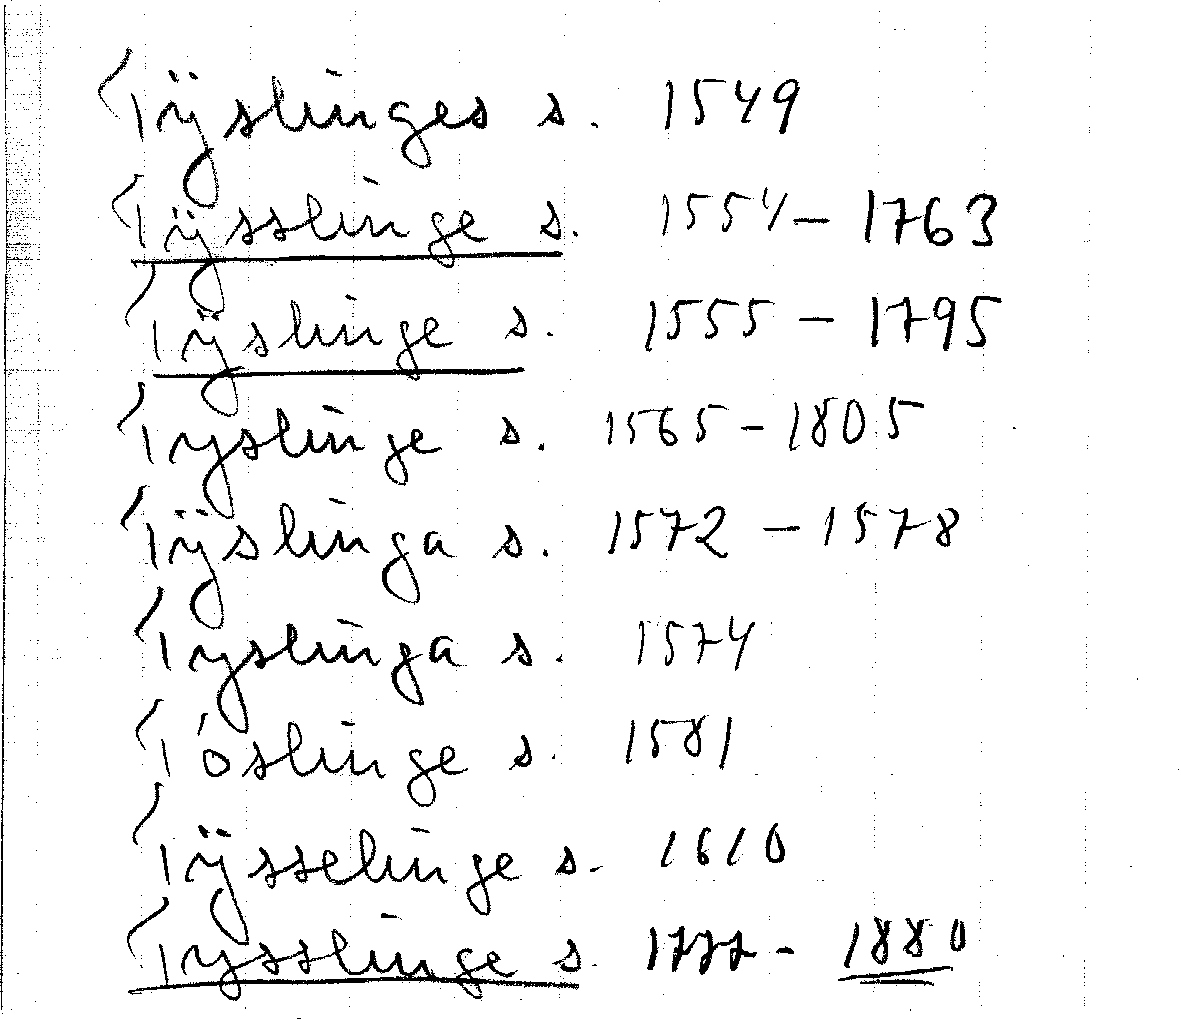 Tÿslinges s. 1549
Tÿsslinge s. 1554 – 1763
Tÿslinge s. 1555 – 1795
Tyslinge s. 1565 – 1805
Tÿslinga s. 1572 – 1578
Tyslinga s. 1574
Tóslinge s. 1581
Tÿsselinge s. 1610
Tysslinge s 1777 - 1880